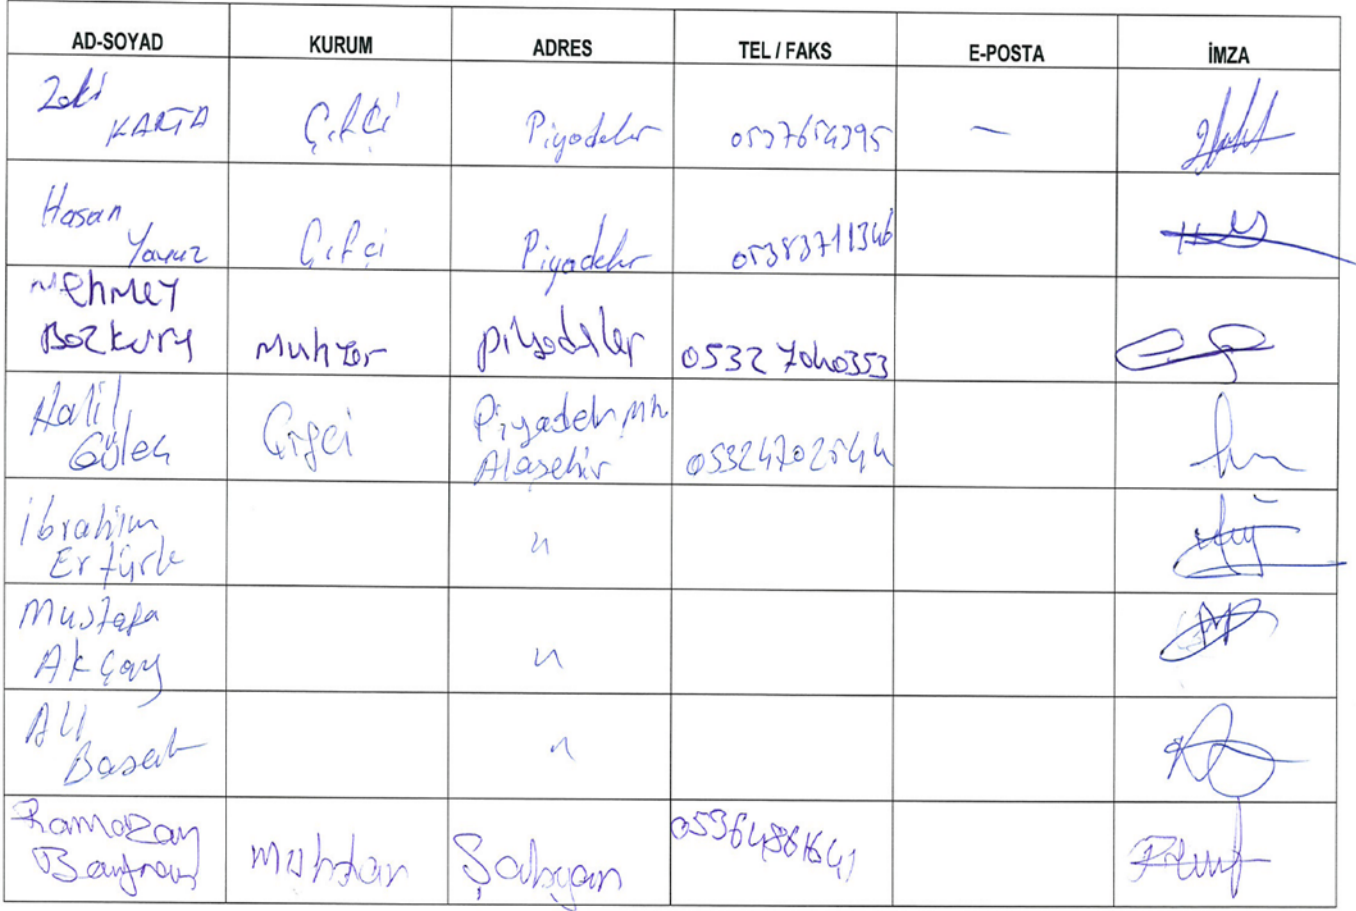 AD-SOYAD KURUM ADRES TEL / FAKS E-POSTA İMZA
Zeki
KARTA Çifçi Piyadeler 0537654395 —
Hasan
Yavuz Çifçi Piyadeler 05383711346
Mehmet
Bozkurt Muhtar Piyadeler 05327040353
Halil
Güleç Çifçi Piyadeler Mh.
Alaşehir 05324702544
İbrahim
Ertürk "
Mustafa
Akçay "
Ali
Başak "
Ramazan
Bayram Muhtar Şahyar 05364881641